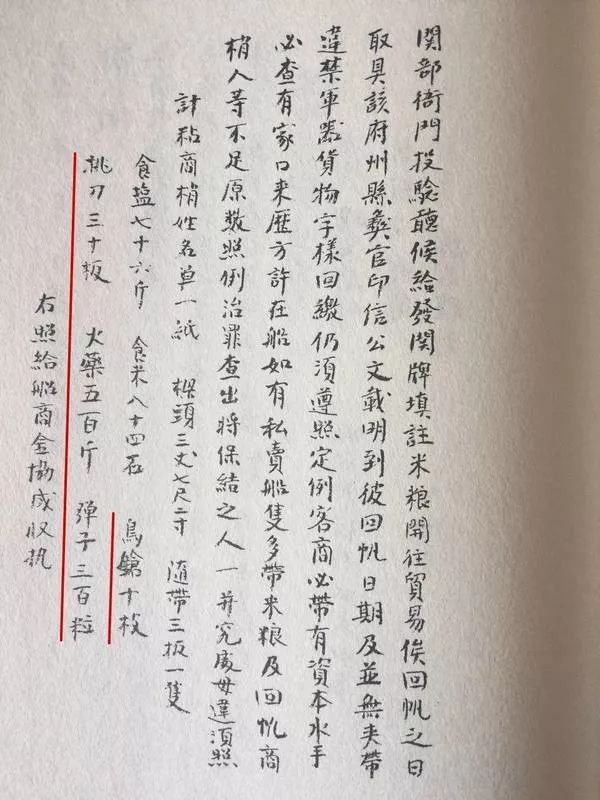 関部衙門投驗聽候給發関牌填註米粮開往貿易俟回帆之日
取具該府州縣彝官印信公文載明到彼回帆日期及並無夹帶
違禁軍器貨物字樣回繳仍須遵照定例客商必帶有資本水手
必查有家口来歴方許在船如有私賣船隻多帶米粮及回帆商
梢人等不足原数照例治罪查出将保結之人一并究處毋違須照
計粘商梢姓名单一紙 樑頭三丈七尺二寸 随帶三板一隻
食塩七十六斤 食米八十四石 鳥鎗十枝
挑刀三十板 火藥五百斤 彈子三百粒
右照給船商金協成收执